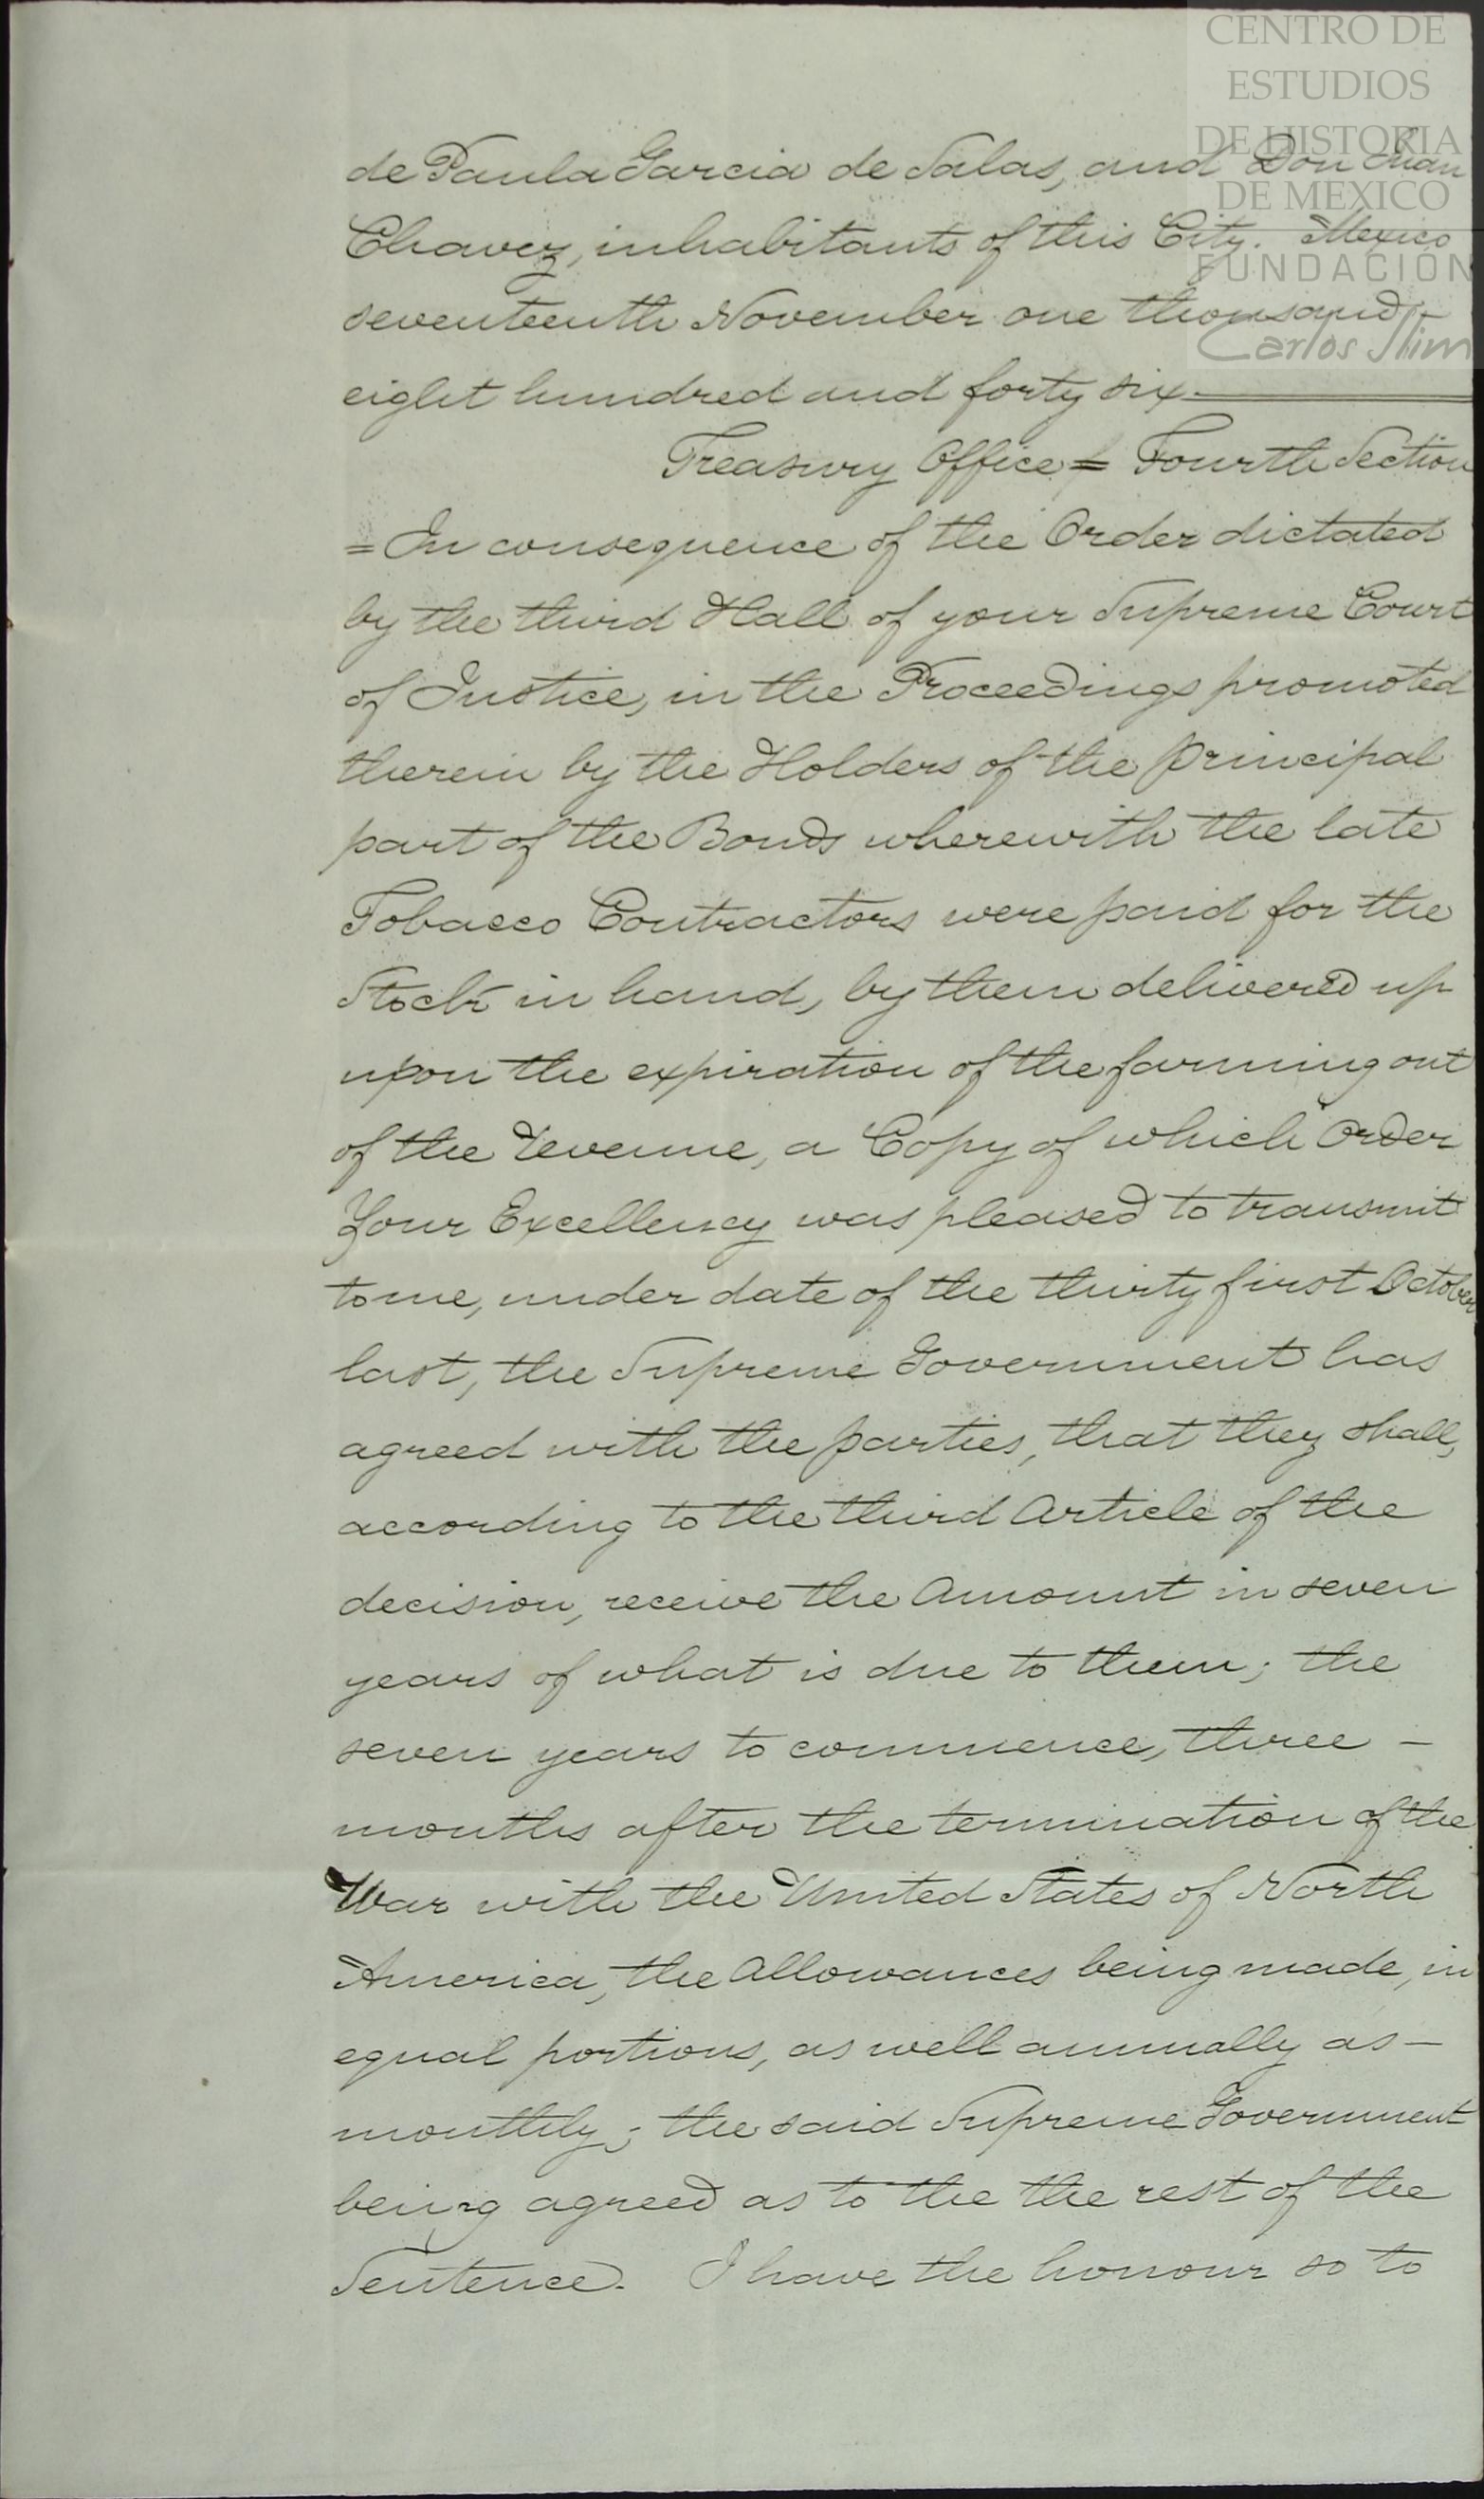 CENTRO DE
ESTUDIOS
DE HISTORIA
DE MEXICO
FUNDACIÓN
Carlos Slim
de Paula Garcia de Salas, and Don Juan
Chavez, inhabitants of this City. Mexico
seventeenth November one thousand -
eight hundred and forty six.
Treasury Office = Fourth Section
= In consequence of the Order dictated
by the third Hall of your Supreme Court
of Justice, in the Proceedings promoted
therein by the Holders of the principal
part of the Bonds wherewith the late
Tobacco Contractors were paid for the
Stock in hand, by them delivered up
upon the expiration of the farming out
of the Revenue, a Copy of which Order
Your Excellency was pleased to transmit
to me, under date of the thirty first October
last, the Supreme Government has
agreed with the parties, that they shall,
according to the third Article of the
decision, receive the Amount in seven
years of what is due to them; the
seven years to commence, three -
months after the termination of the
War with the United States of North
America, the Allowances being made, in
equal portions, as well annually as -
monthly; the said Supreme Government
being agreed as to the the rest of the
Sentence. I have the honour so to